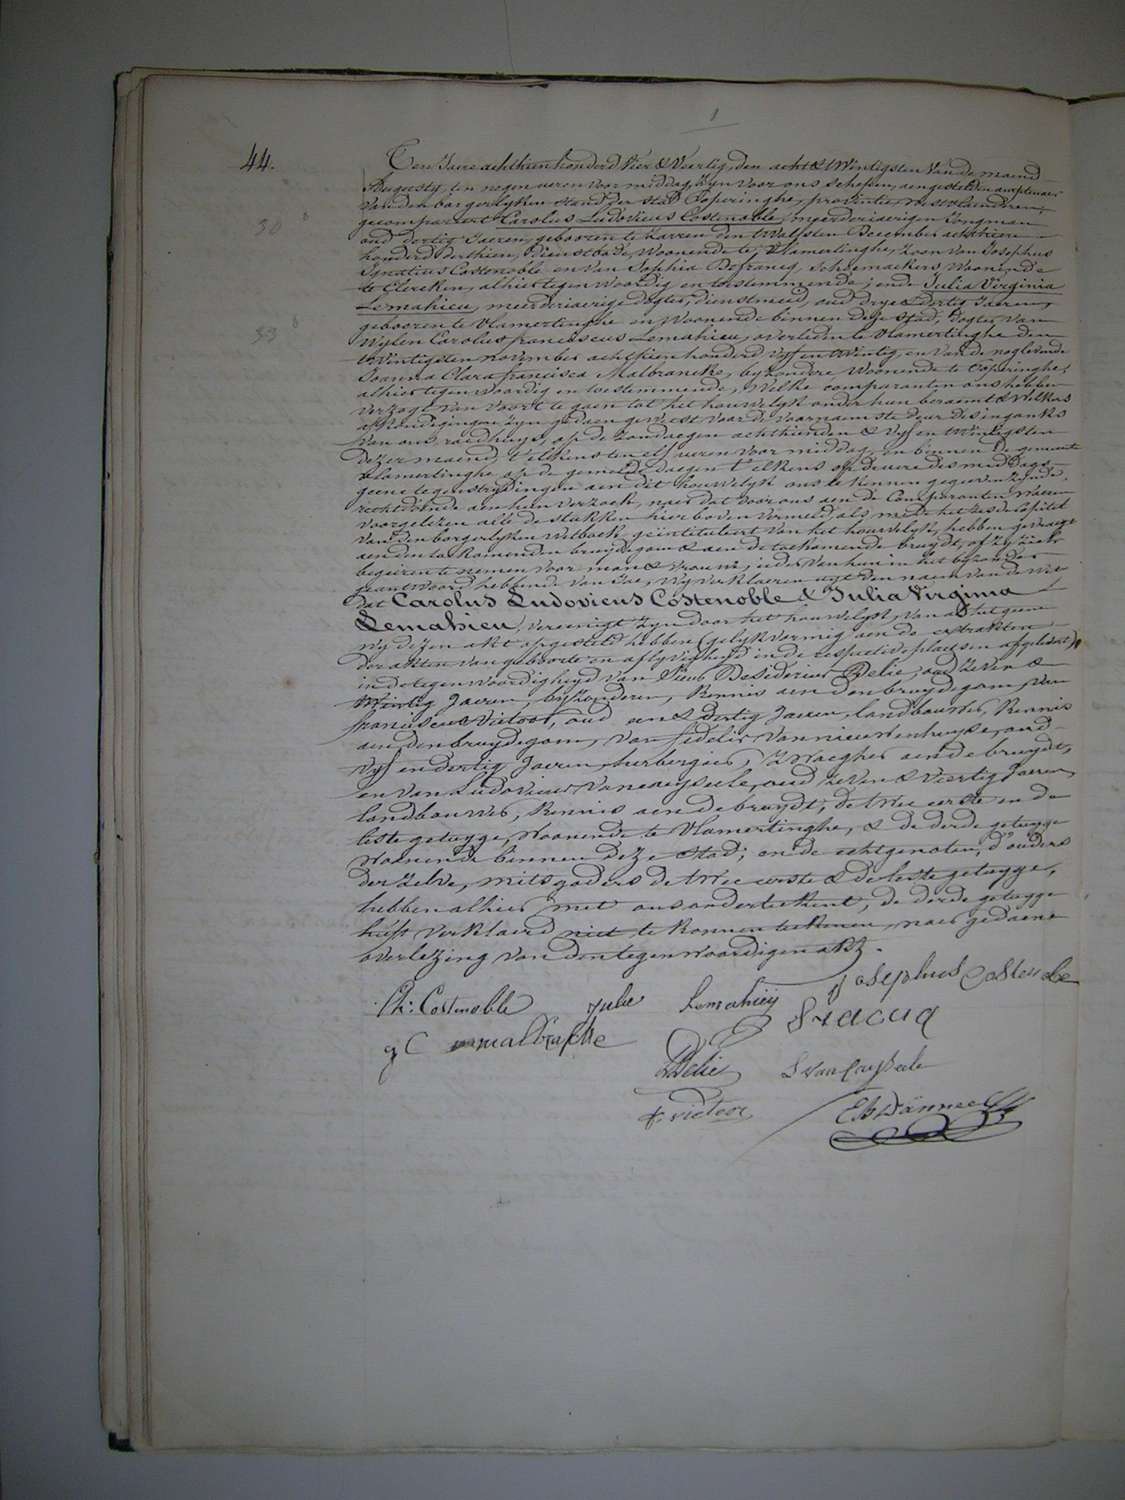 1
44.
Ten Jaere achthien honderd vier & Veertig, den acht & twintigsten Van de maend
Augusty, ten negen uren voor middag, zyn voor ons Schepen, aengestelden amptenaer
van den borgerlyken stand der stad Poperinghe, provintie West Vlaenderen,
gecompareert Carolus Ludovicus Costenoble, meerderjaerigen Jongman
30
oud dertig Jaeren, gebooren te Zarren den twelfsten December achthien
honderd derthien, Dienstbode, Woonende te Vlamertinghe, Zoon van Josephus
Ignatius Costenoble en van Sophia Defrancq, Schoenmaekers, Woonende
te Clercken, alhier tegenwoordig en toestemmende; ende Julia Virginia
Lemahieu, meerderjaerige dogter, dienstmeid, oud drye & dertig Jaeren,
33
gebooren te Vlamertinghe en Woonende binnen deze stad, dogter van
Wylen Carolus franciscus Lemahieu, overleden te Vlamertinghe den
twintigsten november achthien honderd vyf en twintig, en van de noglevende
Joanna Clara francisca Malbrancke, byzondere Woonende te Poperinghe,
alhier tegenwoordig en toestemmende, Welke comparanten ons hebben
verzogt van voort te gaen tot het houwelyk onder hun beraemt & Welkers
afkondigingen zyn gedaen geweest voor de voornaemste deur des ingangs
van ons raedhuys, op de zondaegen achthienden & Vyf en twintigsten
dezer maend, telkens ten elf uren voor middag, en binnen de gemeente
Vlamertinghe op de gemelde daegen telkens op de ure des middags
geene tegenstrydingen aen dit houwelyk ons te kennen gegeven zynde,
rechtdoende aen hun verzoek, naer dat door ons aen de Comparanten Waeren
voorgelezen alle de stukken hier boven vermeld, als mede het zesde Capittel
van den borgerlyken Wetboek, geintituleert van het houwelyk, hebben gevraegt
aen den toekomenden bruydegom & aen de toekomende bruydt, of zy zich
begeiren te nemen voor man & vrouwe, ieder van hun in het byzonder
geantwoord hebbende van Jae, Wy verklaeren uyt den naem van de Wet
dat Carolus Ludovicus Costenoble & Julia Virginia
Lemahieu, vereenigt zyn door het houwelyk, van al het geene
wy dezen akt opgesteld hebben (gelykvormig aen de extrakten
der akten van geboorte en aflyvigheyd in de respective plaetsen afgelevert)
in de tegenwoordigheyd van Pieter Desiderius Delie, oud zeven &
twintig Jaeren, byzonderen, Kennis aen den bruydegom, van
franciscus Victoor, oud een & dertig Jaeren, landbouwer, Kennis
aen den bruydegom, van fidelis Vannieuwenhuyse, oud
vyf en dertig Jaeren, herbergier, Zwaeger aen de bruydt,
en van Ludovicus Vancayseele, oud zeven & Veertig Jaeren,
landbouwer, Kennis aen de bruydt; de twee eerste en de
leste getuyge, Woonende te Vlamertinghe, & de derde getuyge
Woonende binnen deze stad; en de echtgenoten, d'ouders
der zelve, mitsgaders de twee eerste & de leste getuyge,
hebben alhier met ons onderteekent, de derde getuyge
heeft verklaerd niet te konnen teekenen, naer gedaene
overlezing van den tegenwoordigen akt.
Ch: Costenoble Julie Lemahieu Josephus Costenoble
J C malbrancke
DDelie L Van Cayseele
F victoor